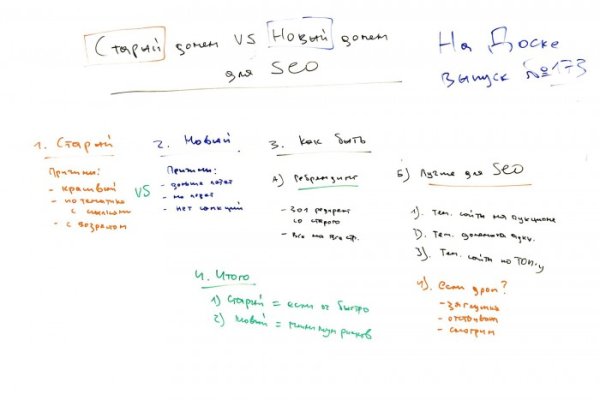 Старый домен VS Новый домен
для SEO
На Доске
выпуск №173
1. Старый
Причины:
- красивый
- по тематике
с ссылками
- с возрастом
VS
2. Новый
Причины:
- дольше
- не
- нет санкций
3. Как быть
А) Ребрендинг
- 301 редирект
со старого
- Все на все стр.
Б) Лучше для SEO
1). Тем. сайты на аукционе
2). Тем. домены
3). Тем. сайты по ТОП-у
4). Если дроп?
- заглушка
- отстаивание
- смотрим
4. Итого
1) Старый = если оч быстро
2) Новый = минимум рисков